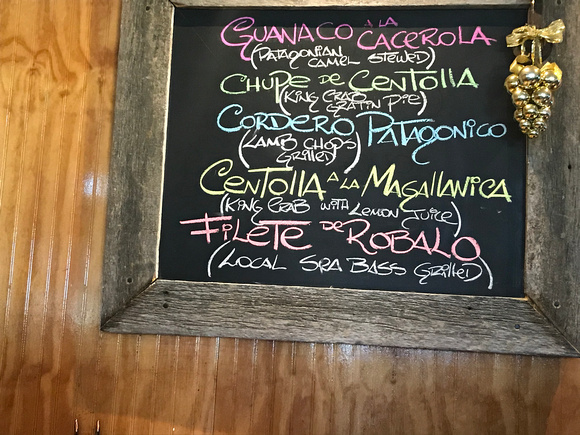 GUANACO A LA CACEROLA
(PATAGONIAN CAMEL STEWED)
CHUPE DE CENTOLLA
(KING CRAB GRATIN PIE)
CORDERO PATAGONICO
(LAMB CHOPS GRILLED)
CENTOLLA A LA MAGALLANICA
(KING CRAB WITH LEMON JUICE)
FILETE DE ROBALO
(LOCAL SEA BASS GRILLED)